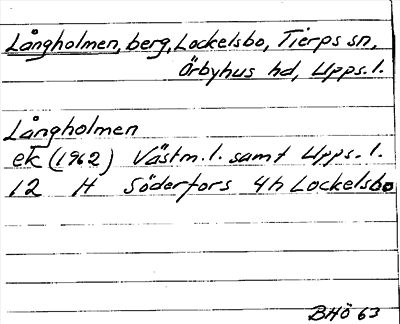 Långholmen, berg, Lockelsbo, Tierps sn,
Örbyhus hd, Upps. l.
Långholmen
ek (1962) Västm. l. samt Upps. l.
12 H Söderfors 4h Lockelsbo
BHÖ 63